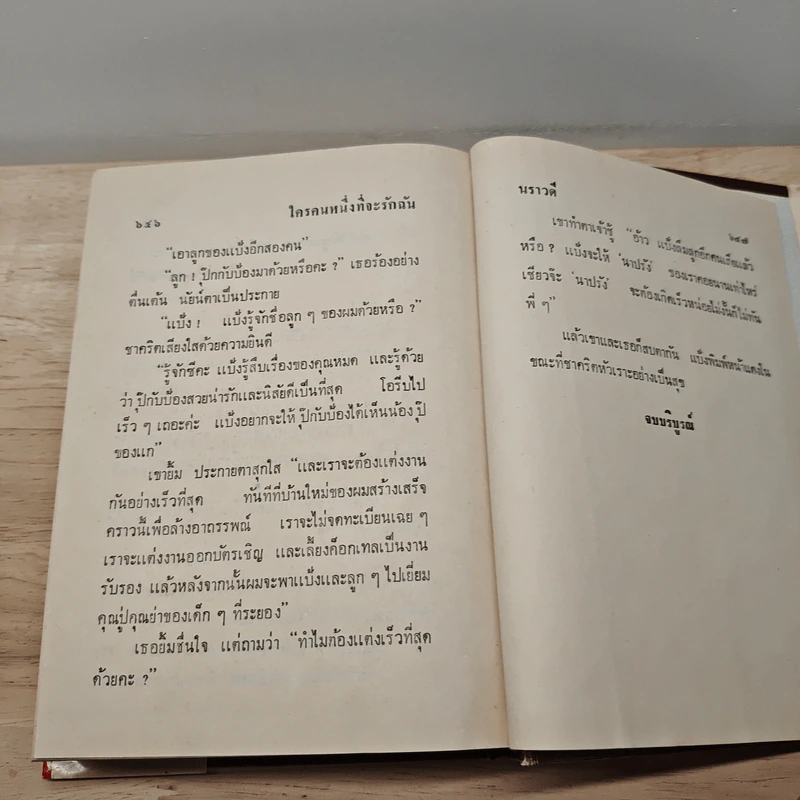 ๖๔๖ ใครคนหนึ่งที่จะรักฉัน
“เอาลูกของแบ็งอีกสองคน”
“ลูก ! ปุ๊กกับบ๋องมาด้วยหรือคะ ?” เธอร้องอย่าง
ตื่นเต้น นัยน์ตาเป็นประกาย
“แบ็ง ! แบ็งรู้จักชื่อลูก ๆ ของผมด้วยหรือ ?”
ชาคริตเสียงใสด้วยความยินดี
“รู้จักซีคะ แบ็งรู้สืบเรื่องของคุณหมด และรู้ด้วย
ว่าปุ๊กกับบ๋องสวยน่ารักและนิสัยดีเป็นที่สุด โอรีบไป
เร็ว ๆ เถอะค่ะ แบ็งอยากจะให้ ปุ๊กกับบ๋องได้เห็นน้อง ปุ๊
ของแก”
เขายิ้ม ประกายตาสุกใส “และเราจะต้องแต่งงาน
กันอย่างเร็วที่สุด ทันทีที่บ้านใหม่ของผมสร้างเสร็จ
คราวนี้เพื่อล้างอาถรรพณ์ เราจะไม่จดทะเบียนเฉย ๆ
เราจะแต่งงานออกบัตรเชิญ และเลี้ยงค็อกเทลเป็นงาน
รับรอง แล้วหลังจากนั้นผมจะพาแบ็งและลูก ๆ ไปเยี่ยม
คุณปู่คุณย่าของเด็ก ๆ ที่ระยอง”
เธอยิ้มชื่นใจ แต่ถามว่า “ทำไมต้องแต่งเร็วที่สุด
ด้วยคะ ?”
นราวดี ๖๔๗
เขาทำตาเจ้าชู้ “อ้าว แบ็งลืมลูกอีกคนเรียแล้ว
หรือ ? แบ็งจะให้ ‘นาปรัง’ ของเราคอยนานเท่าไหร่
เชียวจ๊ะ ‘นาปรัง’ จะต้องเกิดเร็วหน่อยไม่งั้นก็ไม่ทัน
พี่ ๆ”
แล้วเขาและเธอก็สบตากัน แบ็งพิมพ์หน้าแดงใน
ขณะที่ชาคริตหัวเราะอย่างเป็นสุข
จบบริบูรณ์